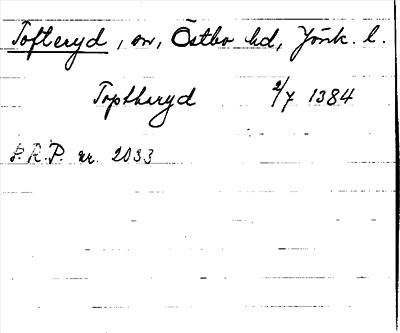 Tofteryd, sn, Östbo hd, Jönk. l.
Topthæryd 2/7 1384
S.R.P. nr. 2033